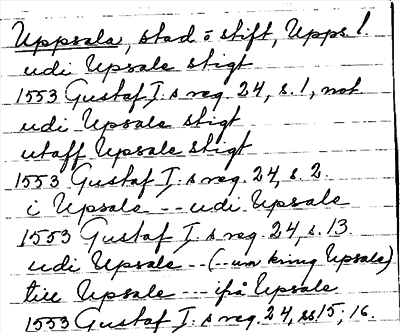 Uppsala, stad o stift, Upps l.
udi Upsale stigt
1553 Gustaf I:s reg. 24, s. 1, not
udi Upsale stigt
utaff Upsale stigt
1553 Gustaf I:s reg. 24, s. 2.
i Upsale -- udi Upsale
1553 Gustaf I:s reg. 24, s. 13.
udi Upsale -- (-- um kring Upsale)
till Upsale --- ifrå Upsale
1553 Gustaf I:s reg. 24, ss 15; 16.